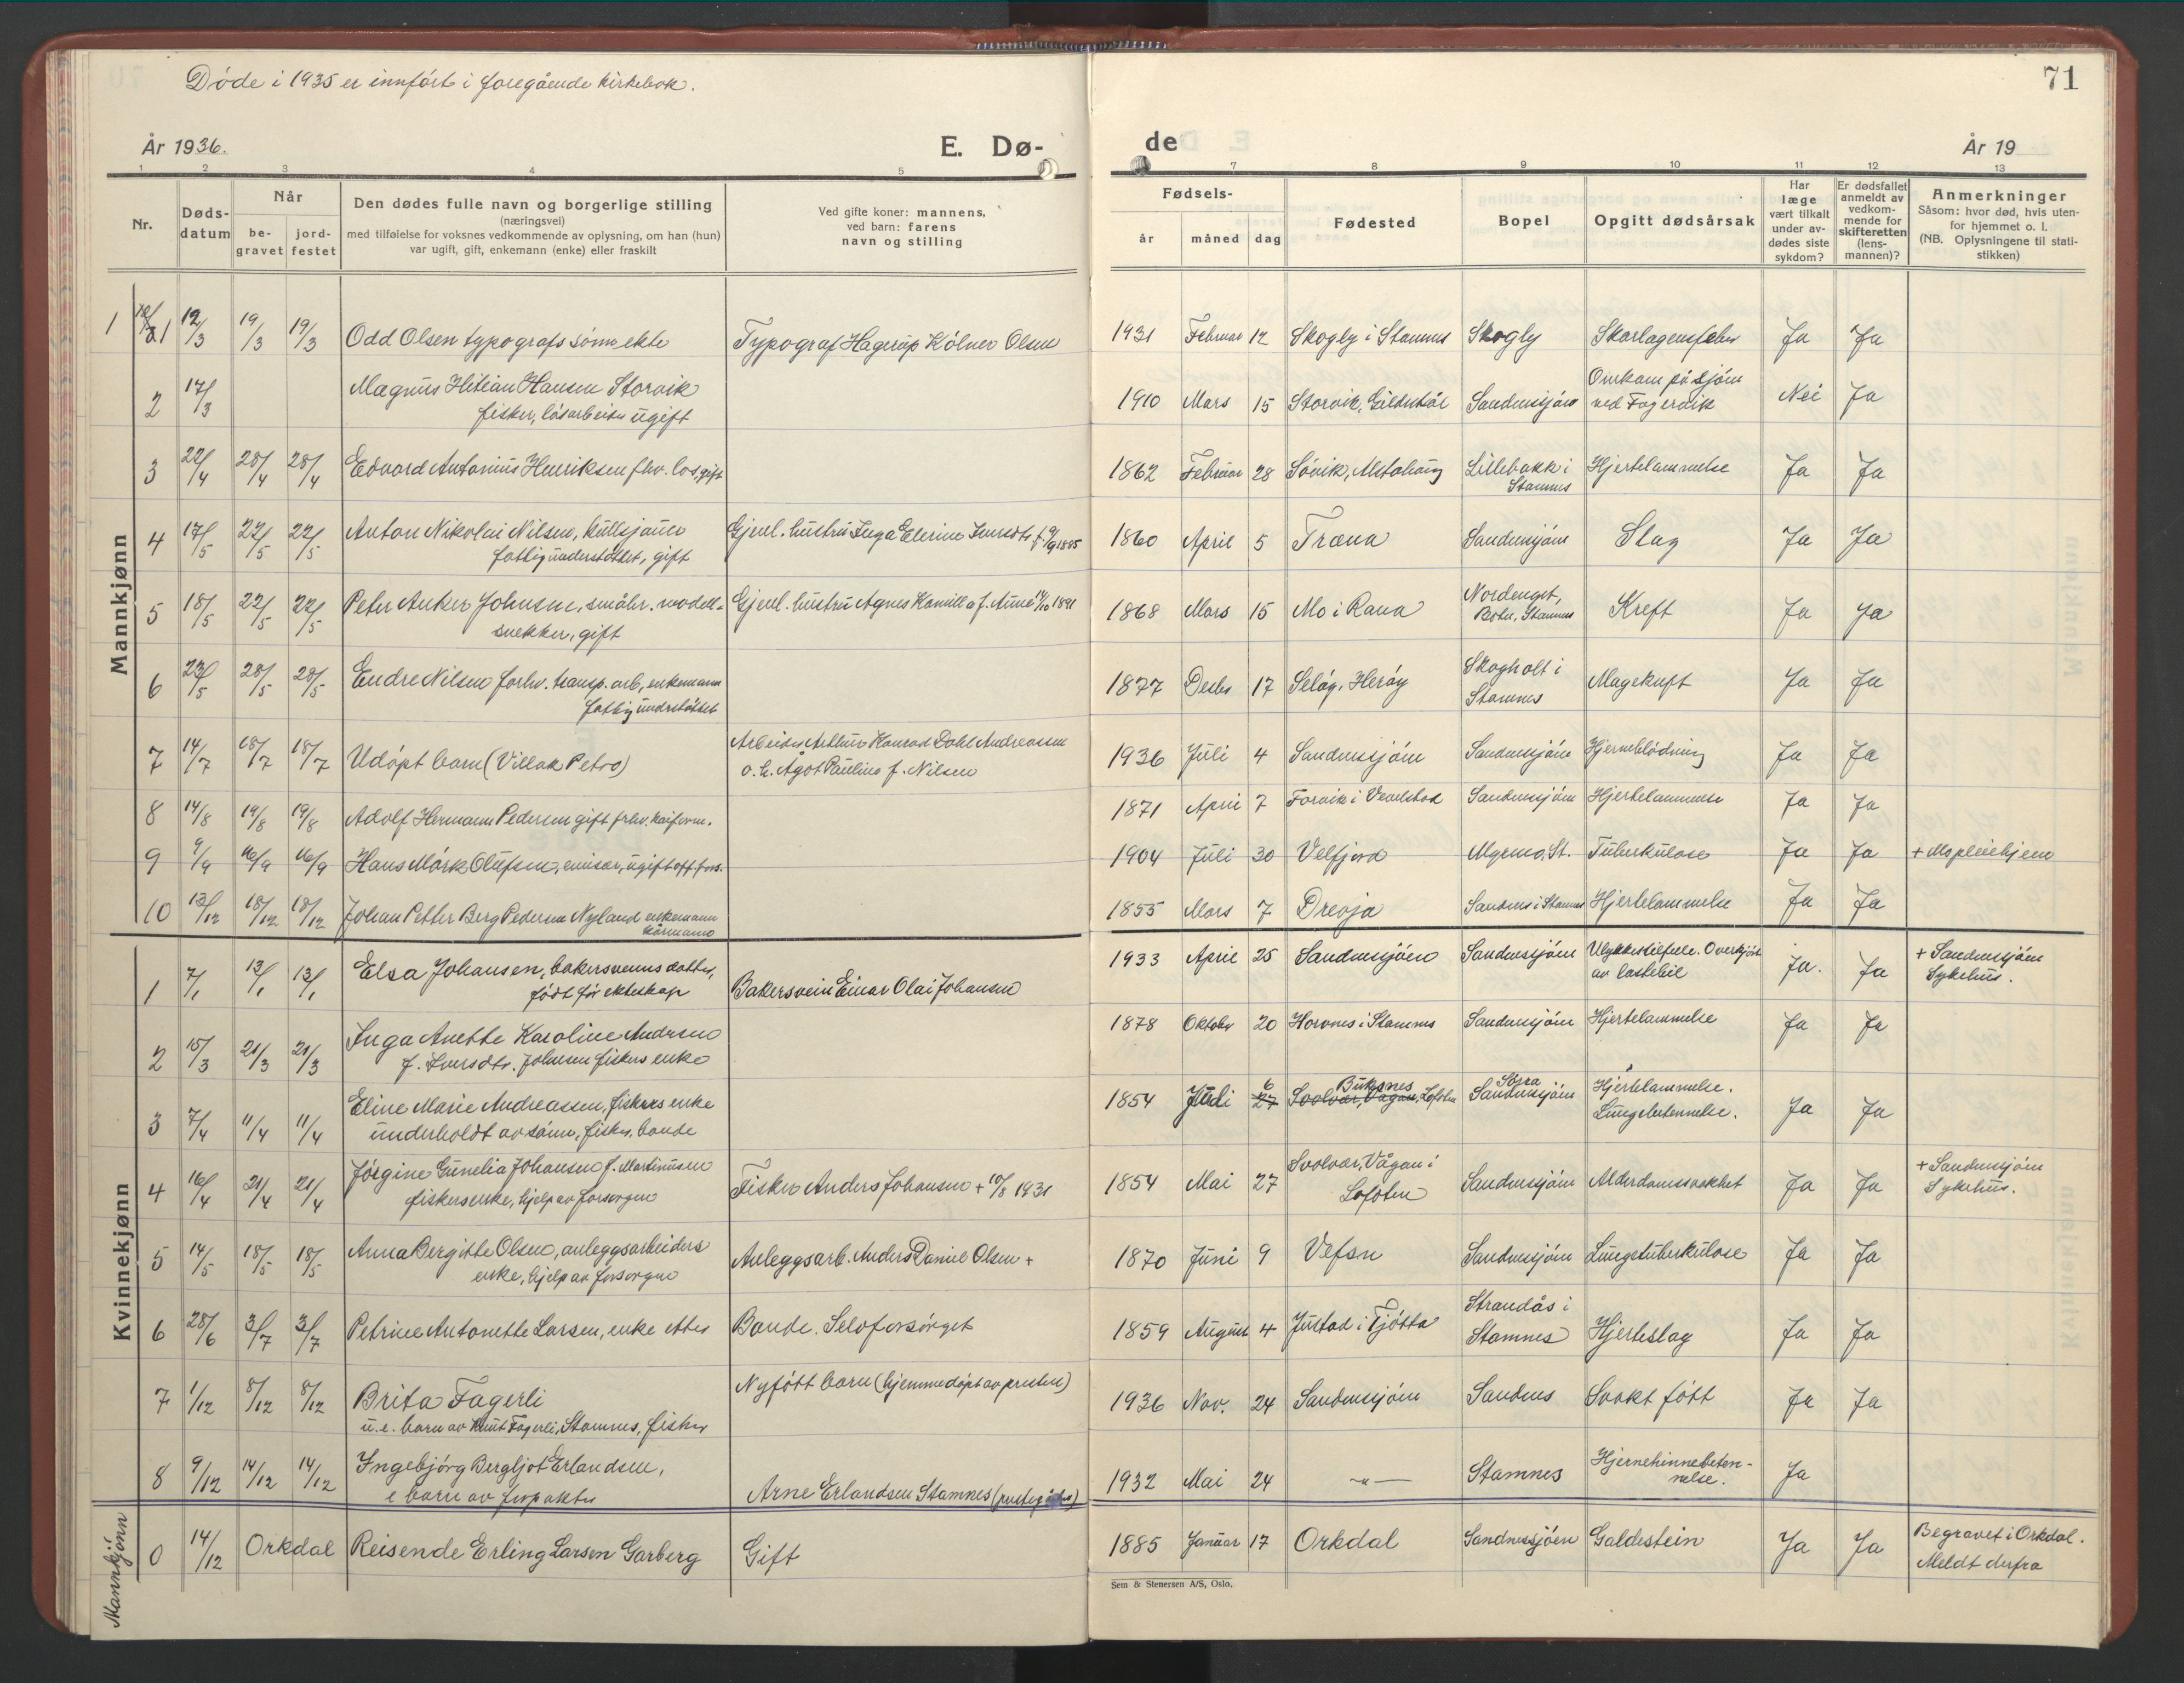 Døde i 1935 er innført i foregående kirkebok.
71
År 1936.
E. Dø-
de
År 19
1 2 3 4 5
7 8 9 10 11 12 13
Nr.
Døds-
datum
Når
be-
gravet
jord-
festet
Den dødes fulle navn og borgerlige stilling
(næringsvei)
med tilføielse for voksnes vedkommende av oplysning, om han (hun)
var ugift, gift, enkemann (enke) eller fraskilt
Ved gifte koner: mannens,
ved barn: farens
navn og stilling
Fødsels-
år
måned
dag
Fødested
Bopel
Opgitt dødsårsak
Har
læge
vært tilkalt
under av-
dødes siste
sykdom?
Er dødsfallet
anmeldt av
vedkom-
mende for
skifteretten
(lens-
mannen)?
Anmerkninger
Såsom: hvor død, hvis uten-
for hjemmet o. l.
(NB. Oplysningene til stati-
stikken)
Mannkjønn
1 12/3 19/3 19/3 Odd Olsen typografs sønn ekte Typograf Hagerup Kölner Olsen 1931 Februar 12 Skogly i Stamnes Skogly Skarlagensfeber Ja Ja
2 17/3 Magnus Hitian Hansen Storvik 1910 Mars 15 Storvik, Gildeskål Sandnessjøen Omkom på sjøen Nei Ja
fisker, løsarbeider ugift
ved Fagervik
3 22/4 28/4 28/4 Edvard Antonius Henriksen fhv. los, gift 1862 Februar 28 Søvik, Alstahaug Lillebakk i Hjertelammelse Ja Ja
Stamnes
4 17/5 22/5 22/5 Anton Nikolai Nilsen, kullsjauer Gjenl. hustru Inga Elerine Iversdtr f. 9/9 1885 1860 April 5 Træna Sandnessjøen Slag Ja Ja
fattigunderstøttet, gift
5 18/5 22/5 22/5 Peter Anker Johnsen, småbr. modell- Gjenl. hustru Agnes Kamilla f. Aune 14/10 1891 1868 Mars 15 Mo i Rana Nordenget, Kreft Ja Ja
snekker, gift
Botn, Stamnes
6 23/5 28/5 28/5 Endre Nilsen forhv. transp. arb, enkemann 1877 Desbr 17 Seløy, Herøy Skogholt i Magekreft Ja Ja
fattigunderstøttet
Stamnes
7 14/7 18/7 18/7 Udøpt barn (Villak Petro) Arbeider Arthur Konrad Dahl Andreassen 1936 Juli 4 Sandnessjøen Sandnessjøen Hjerneblødning Ja Ja
o. h. Ågot Pauline f. Nilsen
8 14/8 19/8 19/8 Adolf Hermann Pedersen gift fhv. kaiform. 1871 April 7 Forvik i Vevelstad Sandnessjøen Hjertelammelse Ja Ja
9 9/9 16/9 16/9 Hans Mörk Olufsen, emisær, ugift off. fors. 1904 Juli 30 Velfjord Myrmo, St. Tuberkulose Ja Ja + Mo pleiehjem
10 13/12 18/12 18/12 Johan Petter Berg Pedersen Nyland enkemann 1855 Mars 7 Drevja Sandnes i Stamnes Hjertelammelse Ja Ja
Kvinnekjønn
1 7/1 13/1 13/1 Elsa Johansen, bakersvenns datter, Bakersvein Einar Olai Johansen 1933 April 25 Sandnessjøen Sandnessjøen Ulykkestilfelle. Overkjørt Ja. Ja + Sandnessjøen
født før ekteskap
av lastebil
Sykehus.
2 15/3 21/3 21/3 Inga Anette Karoline Andersen 1878 Oktober 20 Horvnes i Stamnes Sandnessjøen Hjertelammelse Ja Ja
f. Iversdtr. Johnsen fiskers enke
3 7/4 11/4 11/4 Eline Marie Andreassen, fiskers enke 1854 Juli 6 27 Buksnes Svolvær, Vågan, Lofoten Søvra Sandnessjøen Hjertelammelse. Ja Ja
underholdt av sønn, fisker, bonde
Lungebetennelse.
4 16/4 21/4 21/4 Jørgine Gunelia Johansen f. Martinusen Fisker Anders Johansen + 10/8 1931 1854 Mai 27 Svolvær, Vågan i Sandnessjøen Alderdomssvakhet Ja Ja + Sandnessjøen
fiskersenke, hjelp av forsorgen
Lofoten
Sykehus.
5 14/5 18/5 18/5 Anna Bergitte Olsen, anleggsarbeiders Anleggsarb. Anders Daniel Olsen + 1870 Juni 9 Vefsn Sandnessjøen Lungetuberkulose Ja Ja
enke, hjelp av forsorgen
6 28/6 3/7 3/7 Petrine Antonette Larsen, enke etter Bonde. Selvforsørget 1859 August 4 Justad i Tjøtta Strandås i Hjerteslag Ja Ja
Stamnes
7 1/12 8/12 8/12 Brita Fagerli Nyfött barn (hjemmedøpt av presten) 1936 Nov. 24 Sandnessjøen Sandnes Svakt født Ja Ja
u. e. barn av Knut Fagerli, Stamnes, fisker
8 9/12 14/12 14/12 Ingebjørg Bergljot Erlandsen, Arne Erlandsen Stamnes 1932 Mai 24 —„— Stamnes Hjernehinnebeten- Ja
e barn av forpakter
nelse.
Mannkjønn
0 14/12 Orkdal Reisende Erling Larsen Garberg Gift 1885 Januar 17 Orkdal Sandnessjøen Galdestein Ja Ja Begravet i Orkdal.
Meldt derfra
Sem & Stenersen A/S, Oslo.